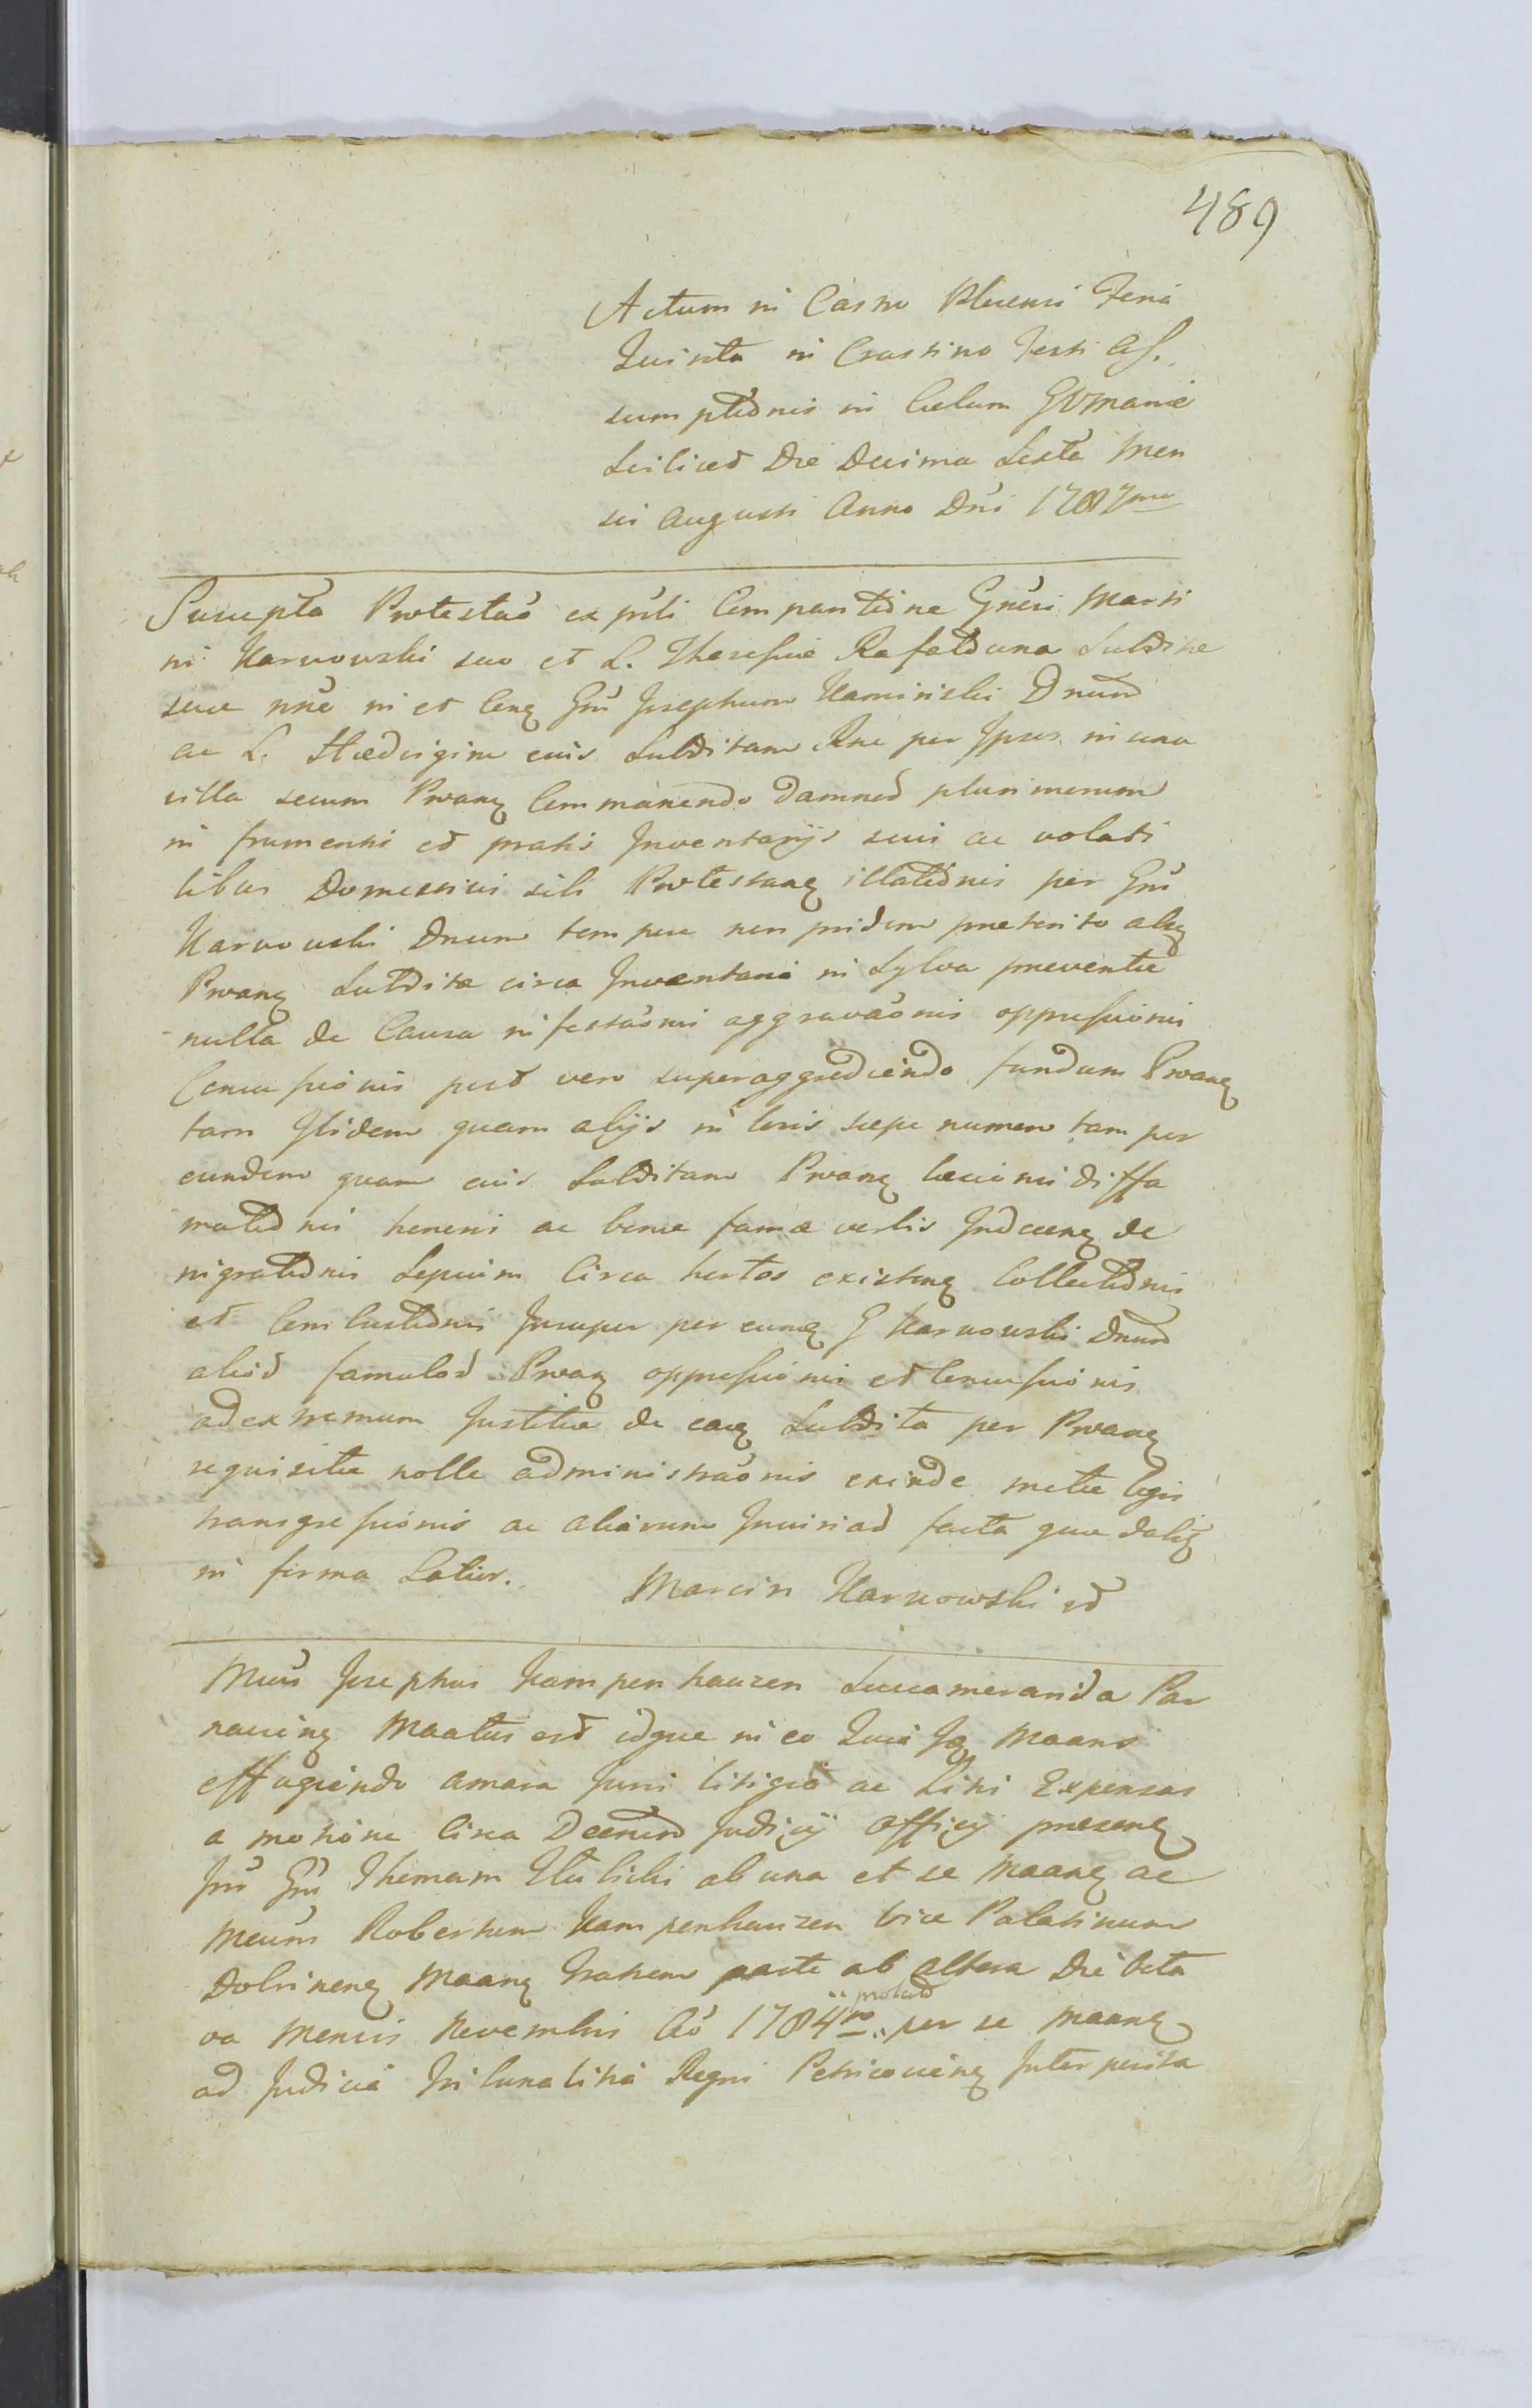 489
Actum in Castro Plocensi Feria
Quinta in Crastino Festi As.
sumptionis in Caelum GVMariae
Scilicet Die Decima Sexta Men
sis Augusti Anno Dni 1787mo
Suscepta Protestao ex pnti Comparitione Gnesi Marti
ni Karwowski suo et L. Theresiae Rafalowna Subditae
suae nne in et Cenq Gm Josephum Kaminski Dnum
ac L. Haedvigim eius Subditam Rne per Ipsos in una
villa secum Proanq Commanendo Damnod plurimorum
in frumentis et pratis Inventarijs suis ac volati
libus Domesticis sibi Protestanq illationis per Gm
Karwowski Dnum tempore non pridem praeterito aliq
Proanq Subditae circa Inventaria in Sylva preventae
nulla de Causa infestaonis aggravaonis oppressionis
Concussionis post vero superaggrediendo fundum Proanq
tam Ibidem quam alijs in locis saepe numero tam per
eundem quam eius Subditam Proanq laesionis diffa
mationis honoris ac bonae famae verbis Indecenq de
nigrationis Sepium Circa hortos existenq Collectionis
et Combustionis Insuper per eunq G Karwowski Dnum
aliod famulod Proanq oppressionis et Concussionis
ad extremum Justitiae de eaq Subdita per Proanq
requisitae nolle administraonis exinde metae legis
transgressionis ac aliarum Iniuriad facta quae dabiq
in forma Latior. Marcin Karwowski et
Mcus Josephus Kampenhauzen Succamerarida Par
naviens Maatus est idque in eo Quia Iq Maans
effugiendo amara Juris litigia ac Litis Expensas
a motione Circa Decretum Judicij Officij presenq
Inr Gm Thomam ab una et se Maanq ac
Mcum Robertum Kampenhauzen Vice Palatinum
Dobrinenq Maanq Fratrem parte ab altera Die Octa
va Mensis Novembris Ao 1784to prolato per se Maanq
ad Judicia Tribunalitia Regni Petricovienq Interposita